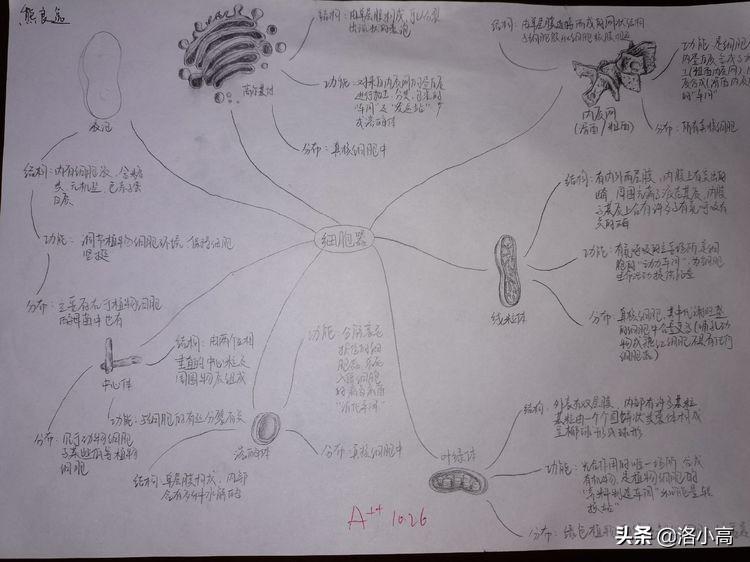 熊良逸
结构：由单层膜构成，可以分裂
出泡状的囊泡
功能：对来自内质网的蛋白质
进行加工、分类、包装的
"车间"及"发送站"
成溶酶体
分布：真核细胞中
高尔基体
结构：由单层膜连接而成的网状结构
功能：是细胞内
蛋白质
的"车间"
内质网
(滑面/粗面)
分布：所有真核细胞
液泡
结构：内有细胞液，含糖
类、无机盐、色素、蛋
白质
功能：调节植物细胞环境，保持细胞
坚挺
分布：主要存在于植物细胞
细胞器
结构：有内外两层膜，内膜上有突出的
嵴，周围充满了液态基质，内膜
与基质上含有许多与有氧呼吸有
关的酶
功能：有氧呼吸的主要场所，是细
胞的"动力车间"，为细胞
生命活动提供能量
分布：真核细胞，其中代谢旺盛
的细胞中含量更多(哺乳动
物成熟红细胞没有
细胞器)
线粒体
中心体
结构：由两个互相
垂直的中心粒及
周围物质组成
功能：与细胞的有丝分裂有关
分布：见于动物细胞
与某些低等植物
细胞
功能：分解衰老
损伤的细
胞器，吞噬
入侵细胞
的病毒病菌
"消化车间"
溶酶体
分布：真核细胞中
结构：单层膜构成，内部
含有多种水解酶
叶绿体
结构：外表有双层膜，内部有许多基粒
基粒由一个个圆饼状
功能：光合作用的唯一场所，合成
有机物，是植物细胞的
"养料制造车间"和"能量转
换站"
分布：绿色植物
A++ 10.26
头条 @洛小高